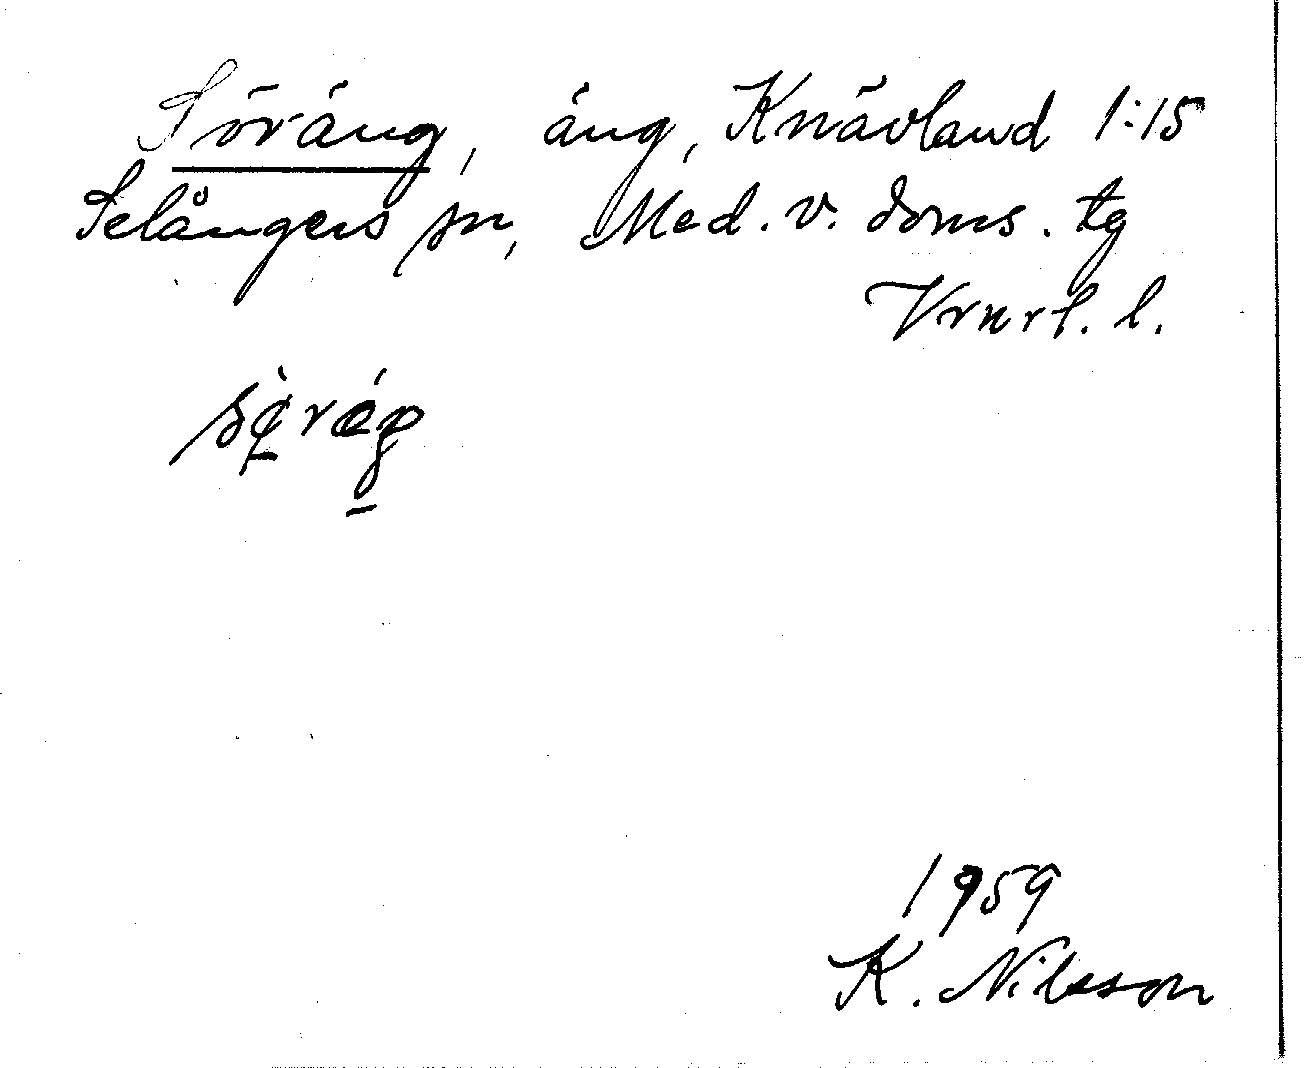 Söräng, äng, Knävland 1:15
Selångers sn, Med. v. doms. tg
Vrnrl. l.
1959
K. Nilsson